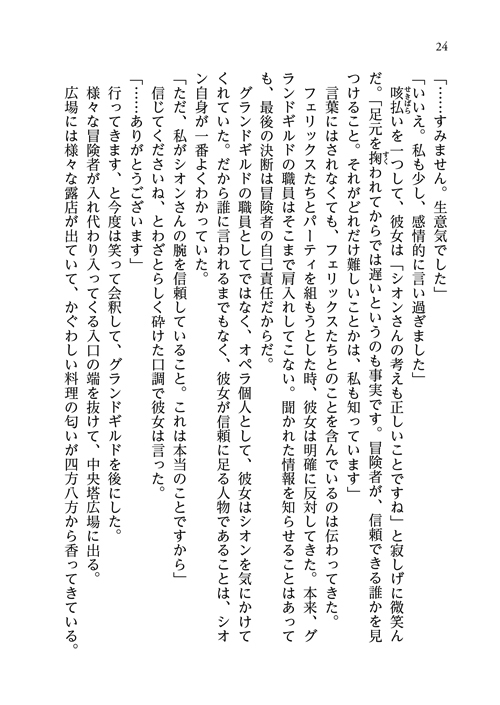 24
「……すみません。生意気でした」
「いいえ。私も少し、感情的に言い過ぎました」
咳払いを一つして、彼女は「シオンさんの考えも正しいことですね」と寂しげに微笑ん
だ。「足元を掬われてからでは遅いというのも事実です。冒険者が、信頼できる誰かを見
つけること。それがどれだけ難しいことかは、私も知っています」
言葉にはされなくても、フェリックスたちとのことを含んでいるのは伝わってきた。
フェリックスたちとパーティを組もうとした時、彼女は明確に反対してきた。本来、グ
ランドギルドの職員はそこまで肩入れしてこない。聞かれた情報を知らせることはあって
も、最後の決断は冒険者の自己責任だからだ。
グランドギルドの職員としてではなく、オペラ個人として、彼女はシオンを気にかけて
くれていた。だから誰に言われるまでもなく、彼女が信頼に足る人物であることは、シオ
ン自身が一番よくわかっていた。
「ただ、私がシオンさんの腕を信頼していること。これは本当のことですから」
信じてくださいね、とわざとらしく砕けた口調で彼女は言った。
「……ありがとうございます」
行ってきます、と今度は笑って会釈して、グランドギルドを後にした。
様々な冒険者が入れ代わり入ってくる入口の端を抜けて、中央塔広場に出る。
広場には様々な露店が出ていて、かぐわしい料理の匂いが四方八方から香ってきている。